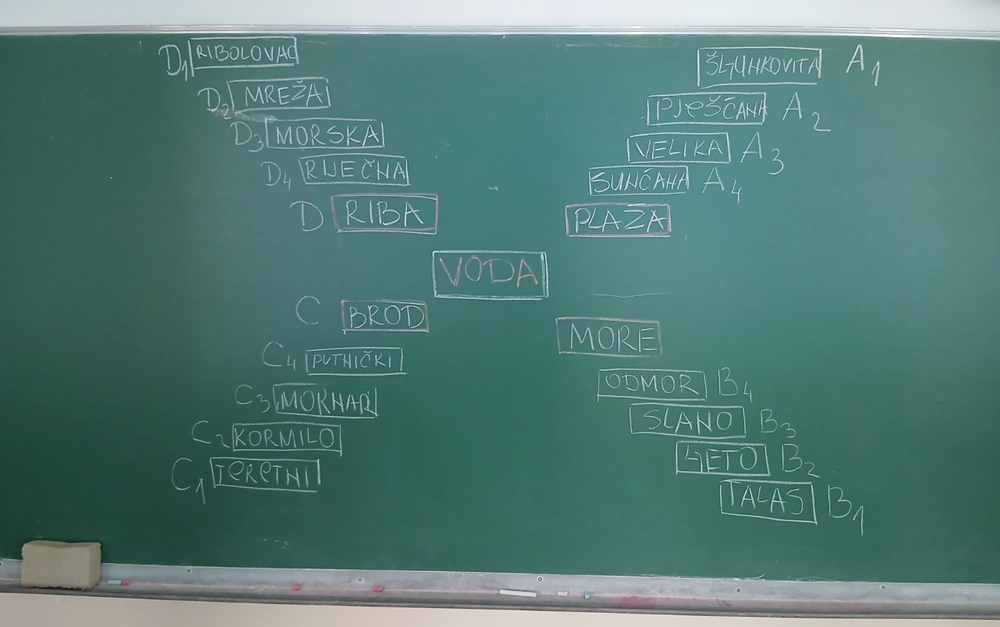 D1 RIBOLOVAC
D2 MREŽA
D3 MORSKA
D4 RIJEČNA
D RIBA
ŠLJUNKOVITA A1
PJEŠČANA A2
VELIKA A3
SUNČANA A4
PLAŽA
VODA
C BROD
C4 PUTNIČKI
C3 MORNAR
C2 KORMILO
C1 TERETNI
MORE
ODMOR B4
SLANO B3
LJETO B2
TALAS B1